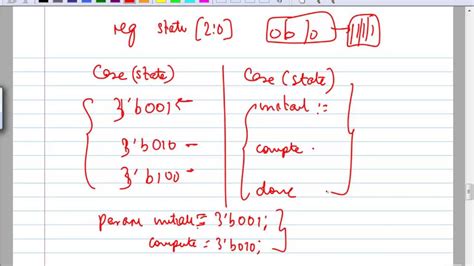 reg state [2:0]
Case (state)
3'b001
3'b010 -
3'b100 -
Case (state)
initial :=
compute .
done
initial = 3'b001;
compute = 3'b010;